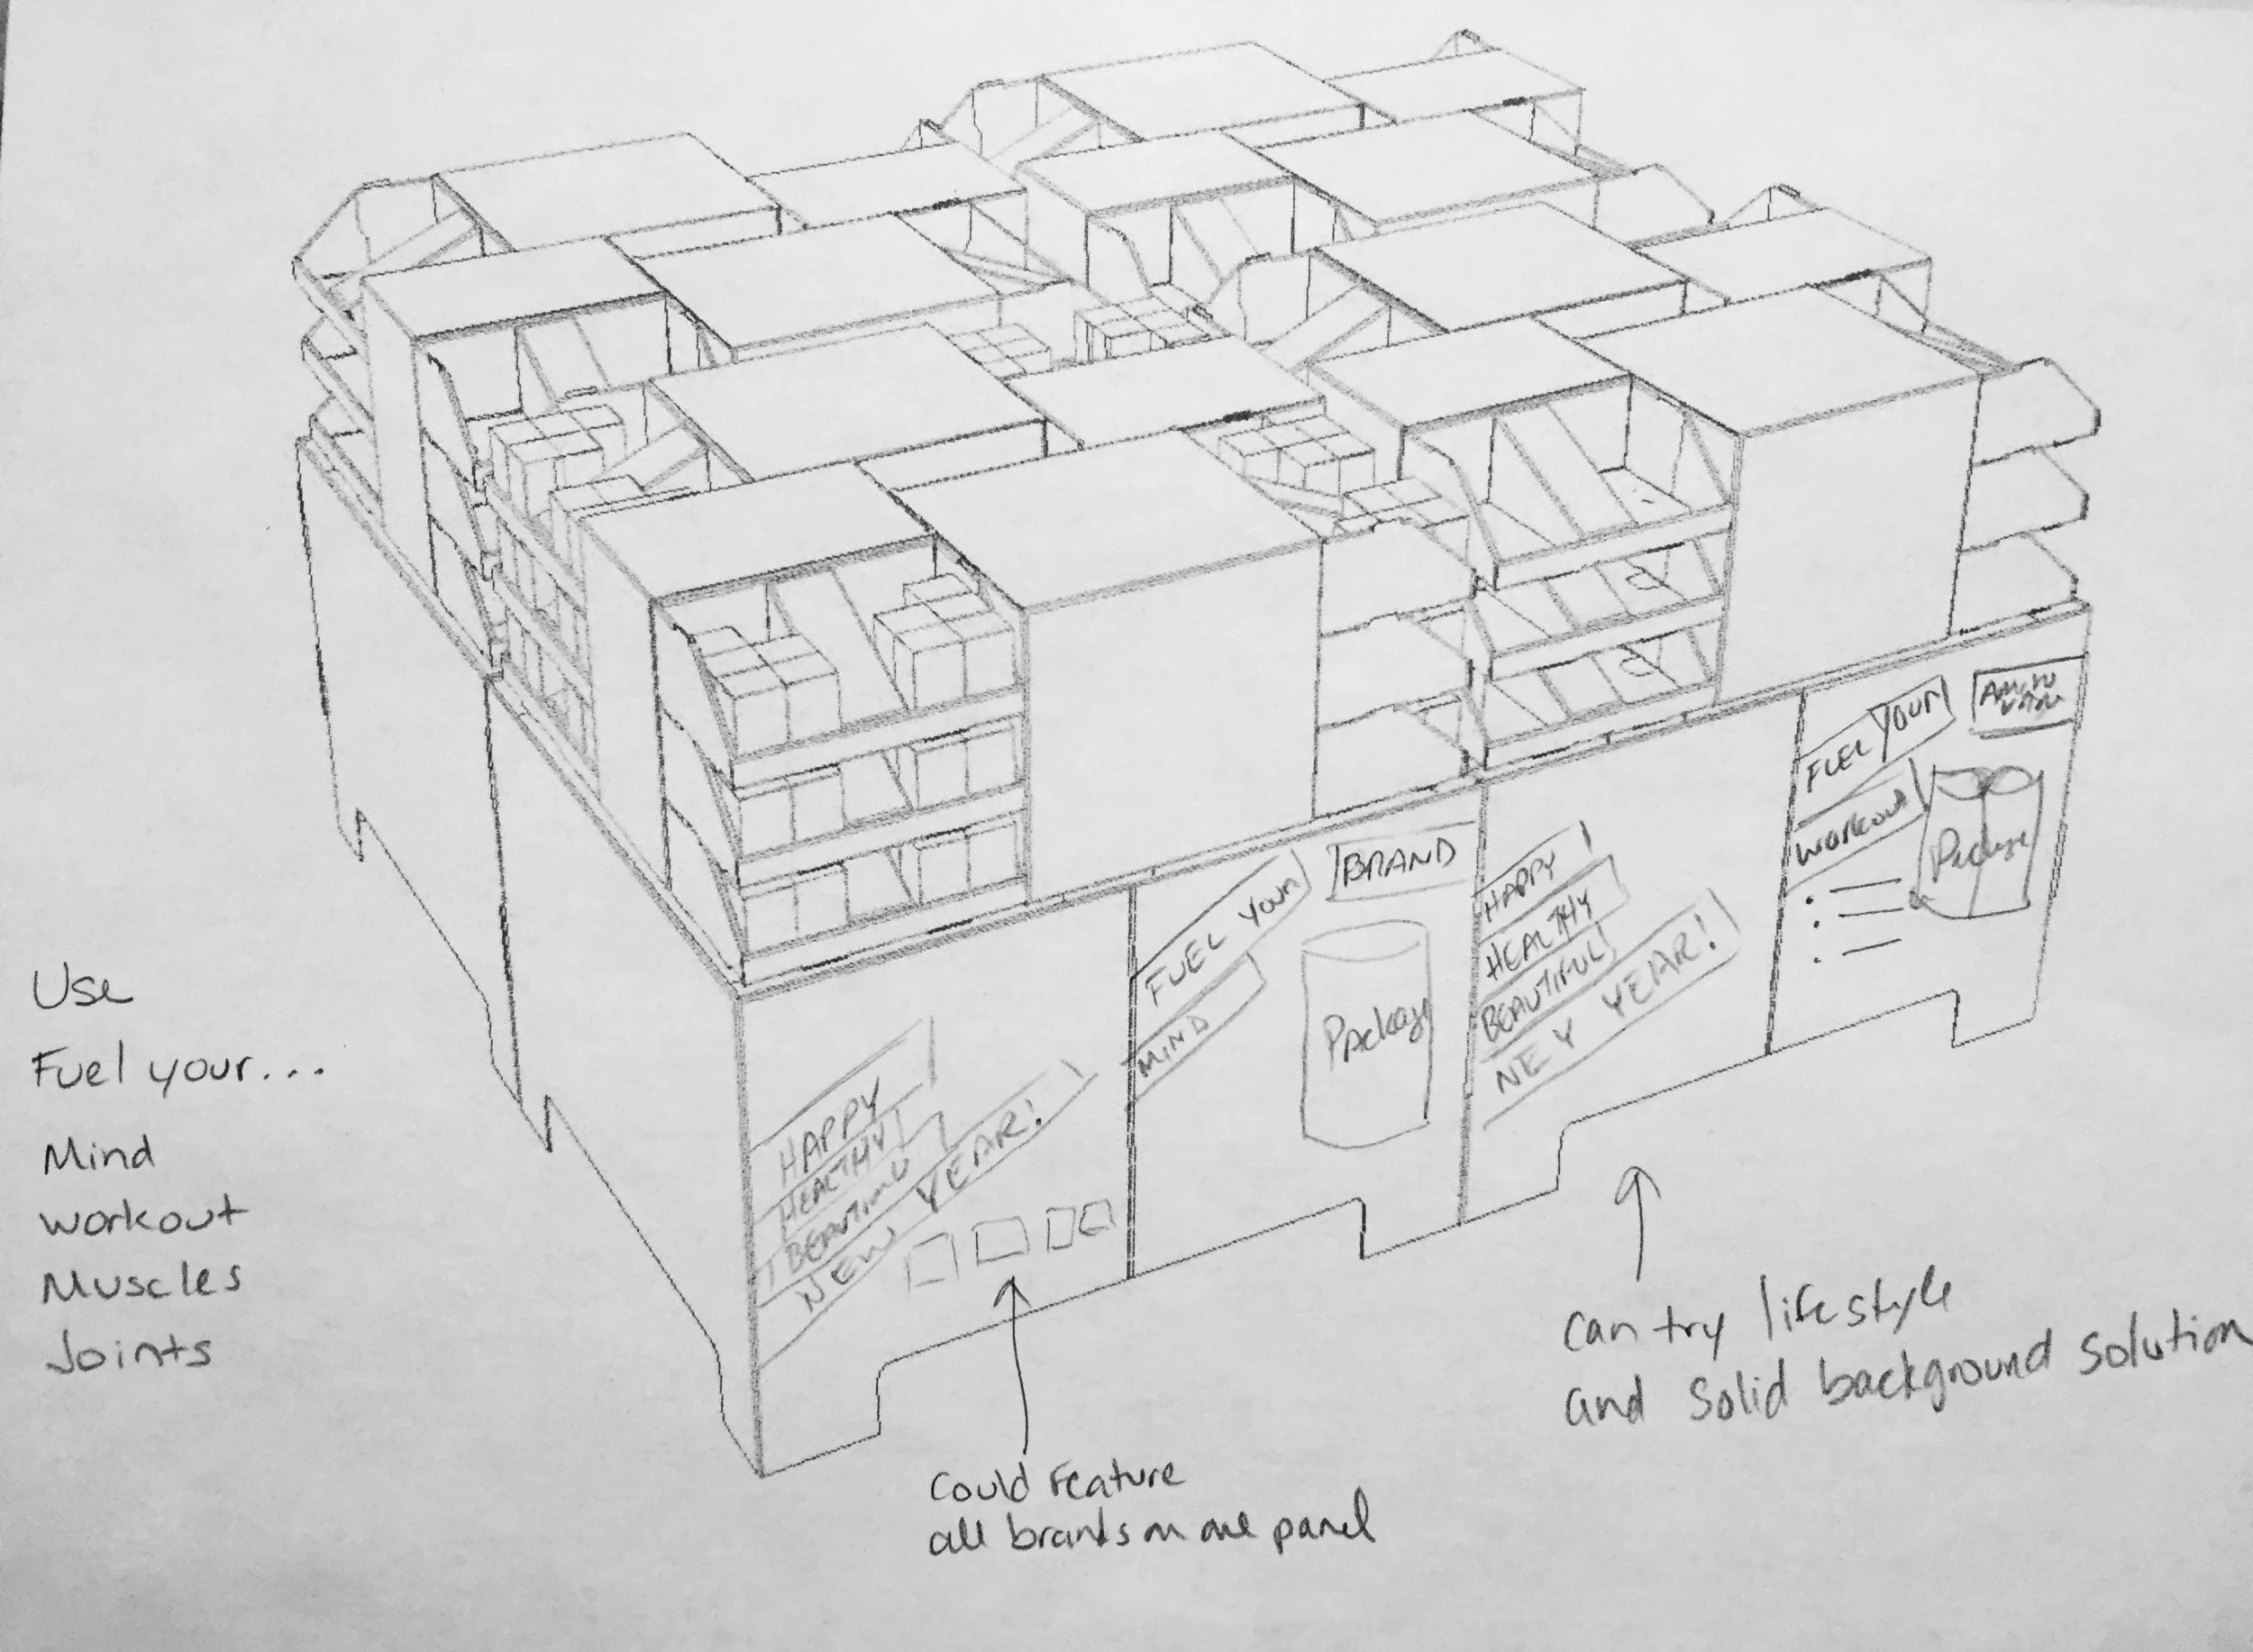 Use
Fuel your...
Mind
workout
Muscles
Joints
HAPPY
HEALTHY
BEAUTIFUL
NEW YEAR!
FUEL YOUR
MIND
BRAND
Package
HAPPY
HEALTHY
BEAUTIFUL
NEY YEAR!
FUEL YOUR
WORKOUT
AMINO
Package
Could Feature
all brands on one panel
can try lifestyle
and solid background solution